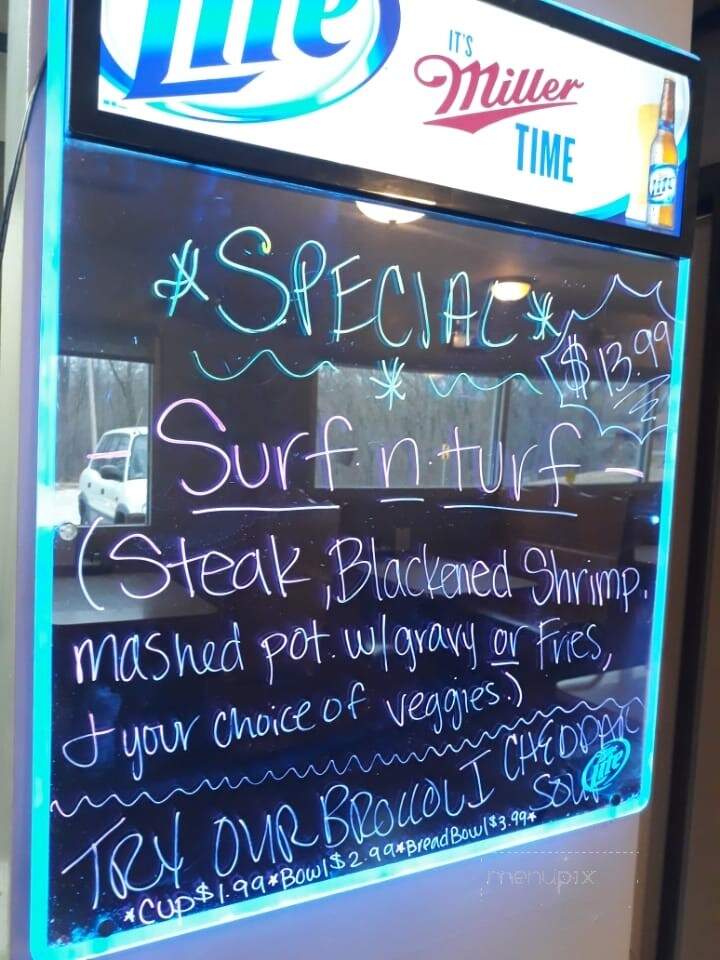 Lite
IT'S
Miller
TIME
Lite
*SPECIAL*
*
$13.99
- Surf n turf -
(Steak, Blackened Shrimp,
mashed pot. w/gravy or Fries,
+ your choice of veggies.)
TRY OUR BROCCOLI CHEDDAR
SOUP
Lite
*Cup $1.99*Bowl $2.99*Bread Bowl $3.99*
menupix